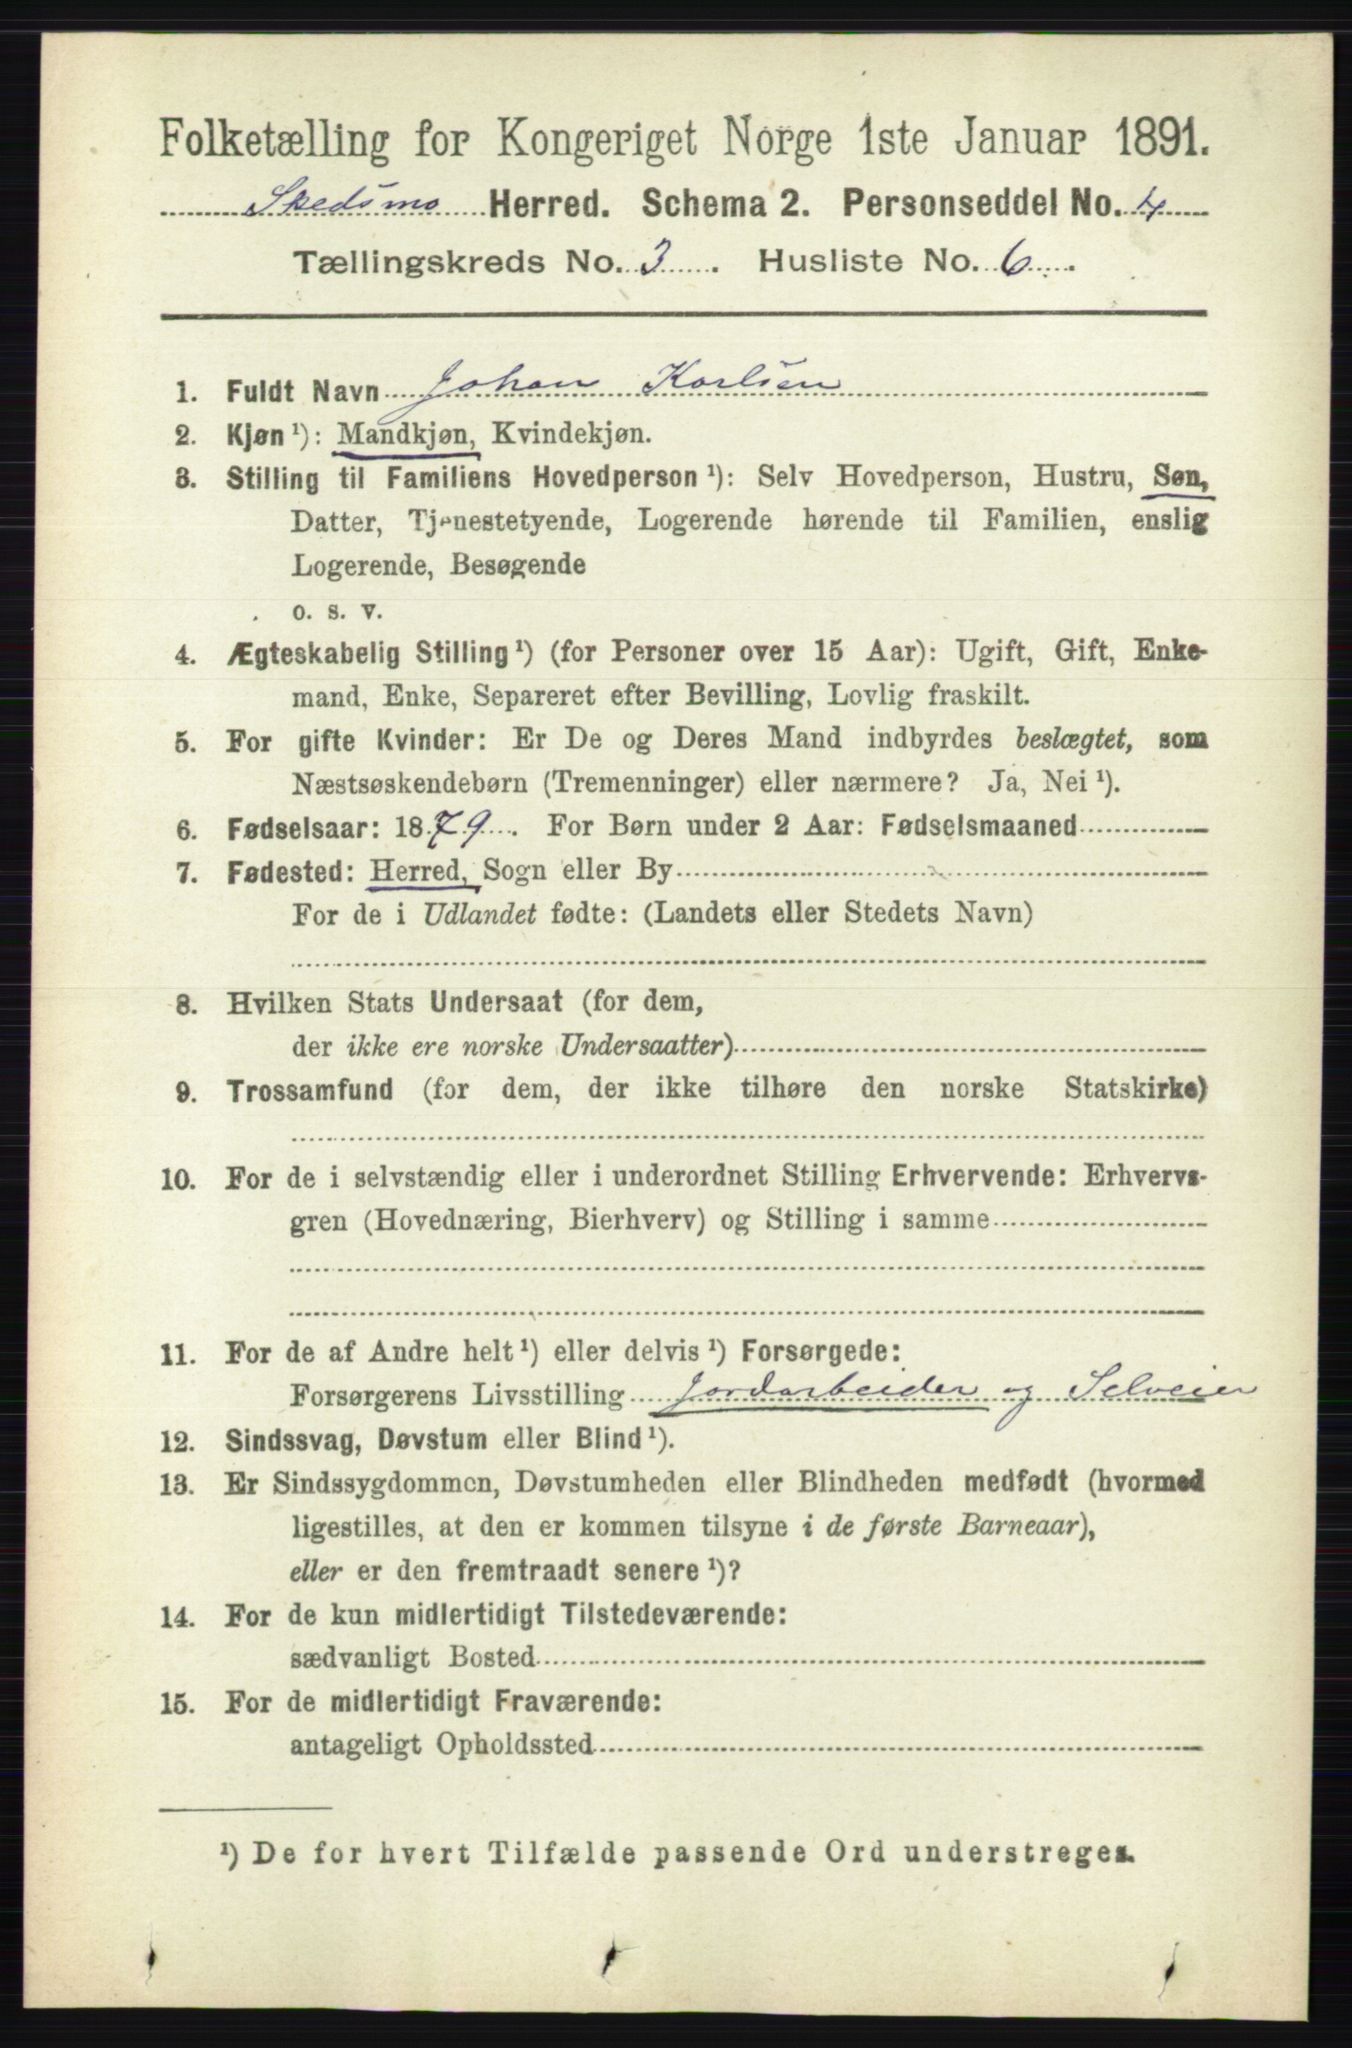 Folketælling for Kongeriget Norge 1ste Januar 1891.
Skedsmo Herred. Schema 2. Personseddel No. 4
Tællingskreds No. 3. Husliste No. 6.
1. Fuldt Navn Johan Karlsen
2. Kjøn ¹): Mandkjøn, Kvindekjøn.
3. Stilling til Familiens Hovedperson ¹): Selv Hovedperson, Hustru, Søn,
Datter, Tjenestetyende, Logerende hørende til Familien, enslig
Logerende, Besøgende
o. s. v.
4. Ægteskabelig Stilling ¹) (for Personer over 15 Aar): Ugift, Gift, Enke-
mand, Enke, Separeret efter Bevilling, Lovlig fraskilt.
5. For gifte Kvinder: Er De og Deres Mand indbyrdes beslægtet, som
Næstsøskendebørn (Tremenninger) eller nærmere? Ja, Nei ¹).
6. Fødselsaar: 1879. For Børn under 2 Aar: Fødselsmaaned
7. Fødested: Herred, Sogn eller By
For de i Udlandet fødte: (Landets eller Stedets Navn)
8. Hvilken Stats Undersaat (for dem,
der ikke ere norske Undersaatter)
9. Trossamfund (for dem, der ikke tilhøre den norske Statskirke)
10. For de i selvstændig eller i underordnet Stilling Erhvervende: Erhvervs-
gren (Hovednæring, Bierhverv) og Stilling i samme
11. For de af Andre helt ¹) eller delvis ¹) Forsørgede:
Forsørgerens Livsstilling Jordarbeider og Selveier
12. Sindssvag, Døvstum eller Blind ¹).
13. Er Sindssygdommen, Døvstumheden eller Blindheden medfødt (hvormed
ligestilles, at den er kommen tilsyne i de første Barneaar),
eller er den fremtraadt senere ¹)?
14. For de kun midlertidigt Tilstedeværende:
sædvanligt Bosted
15. For de midlertidigt Fraværende:
antageligt Opholdssted
¹) De for hvert Tilfælde passende Ord understreges.